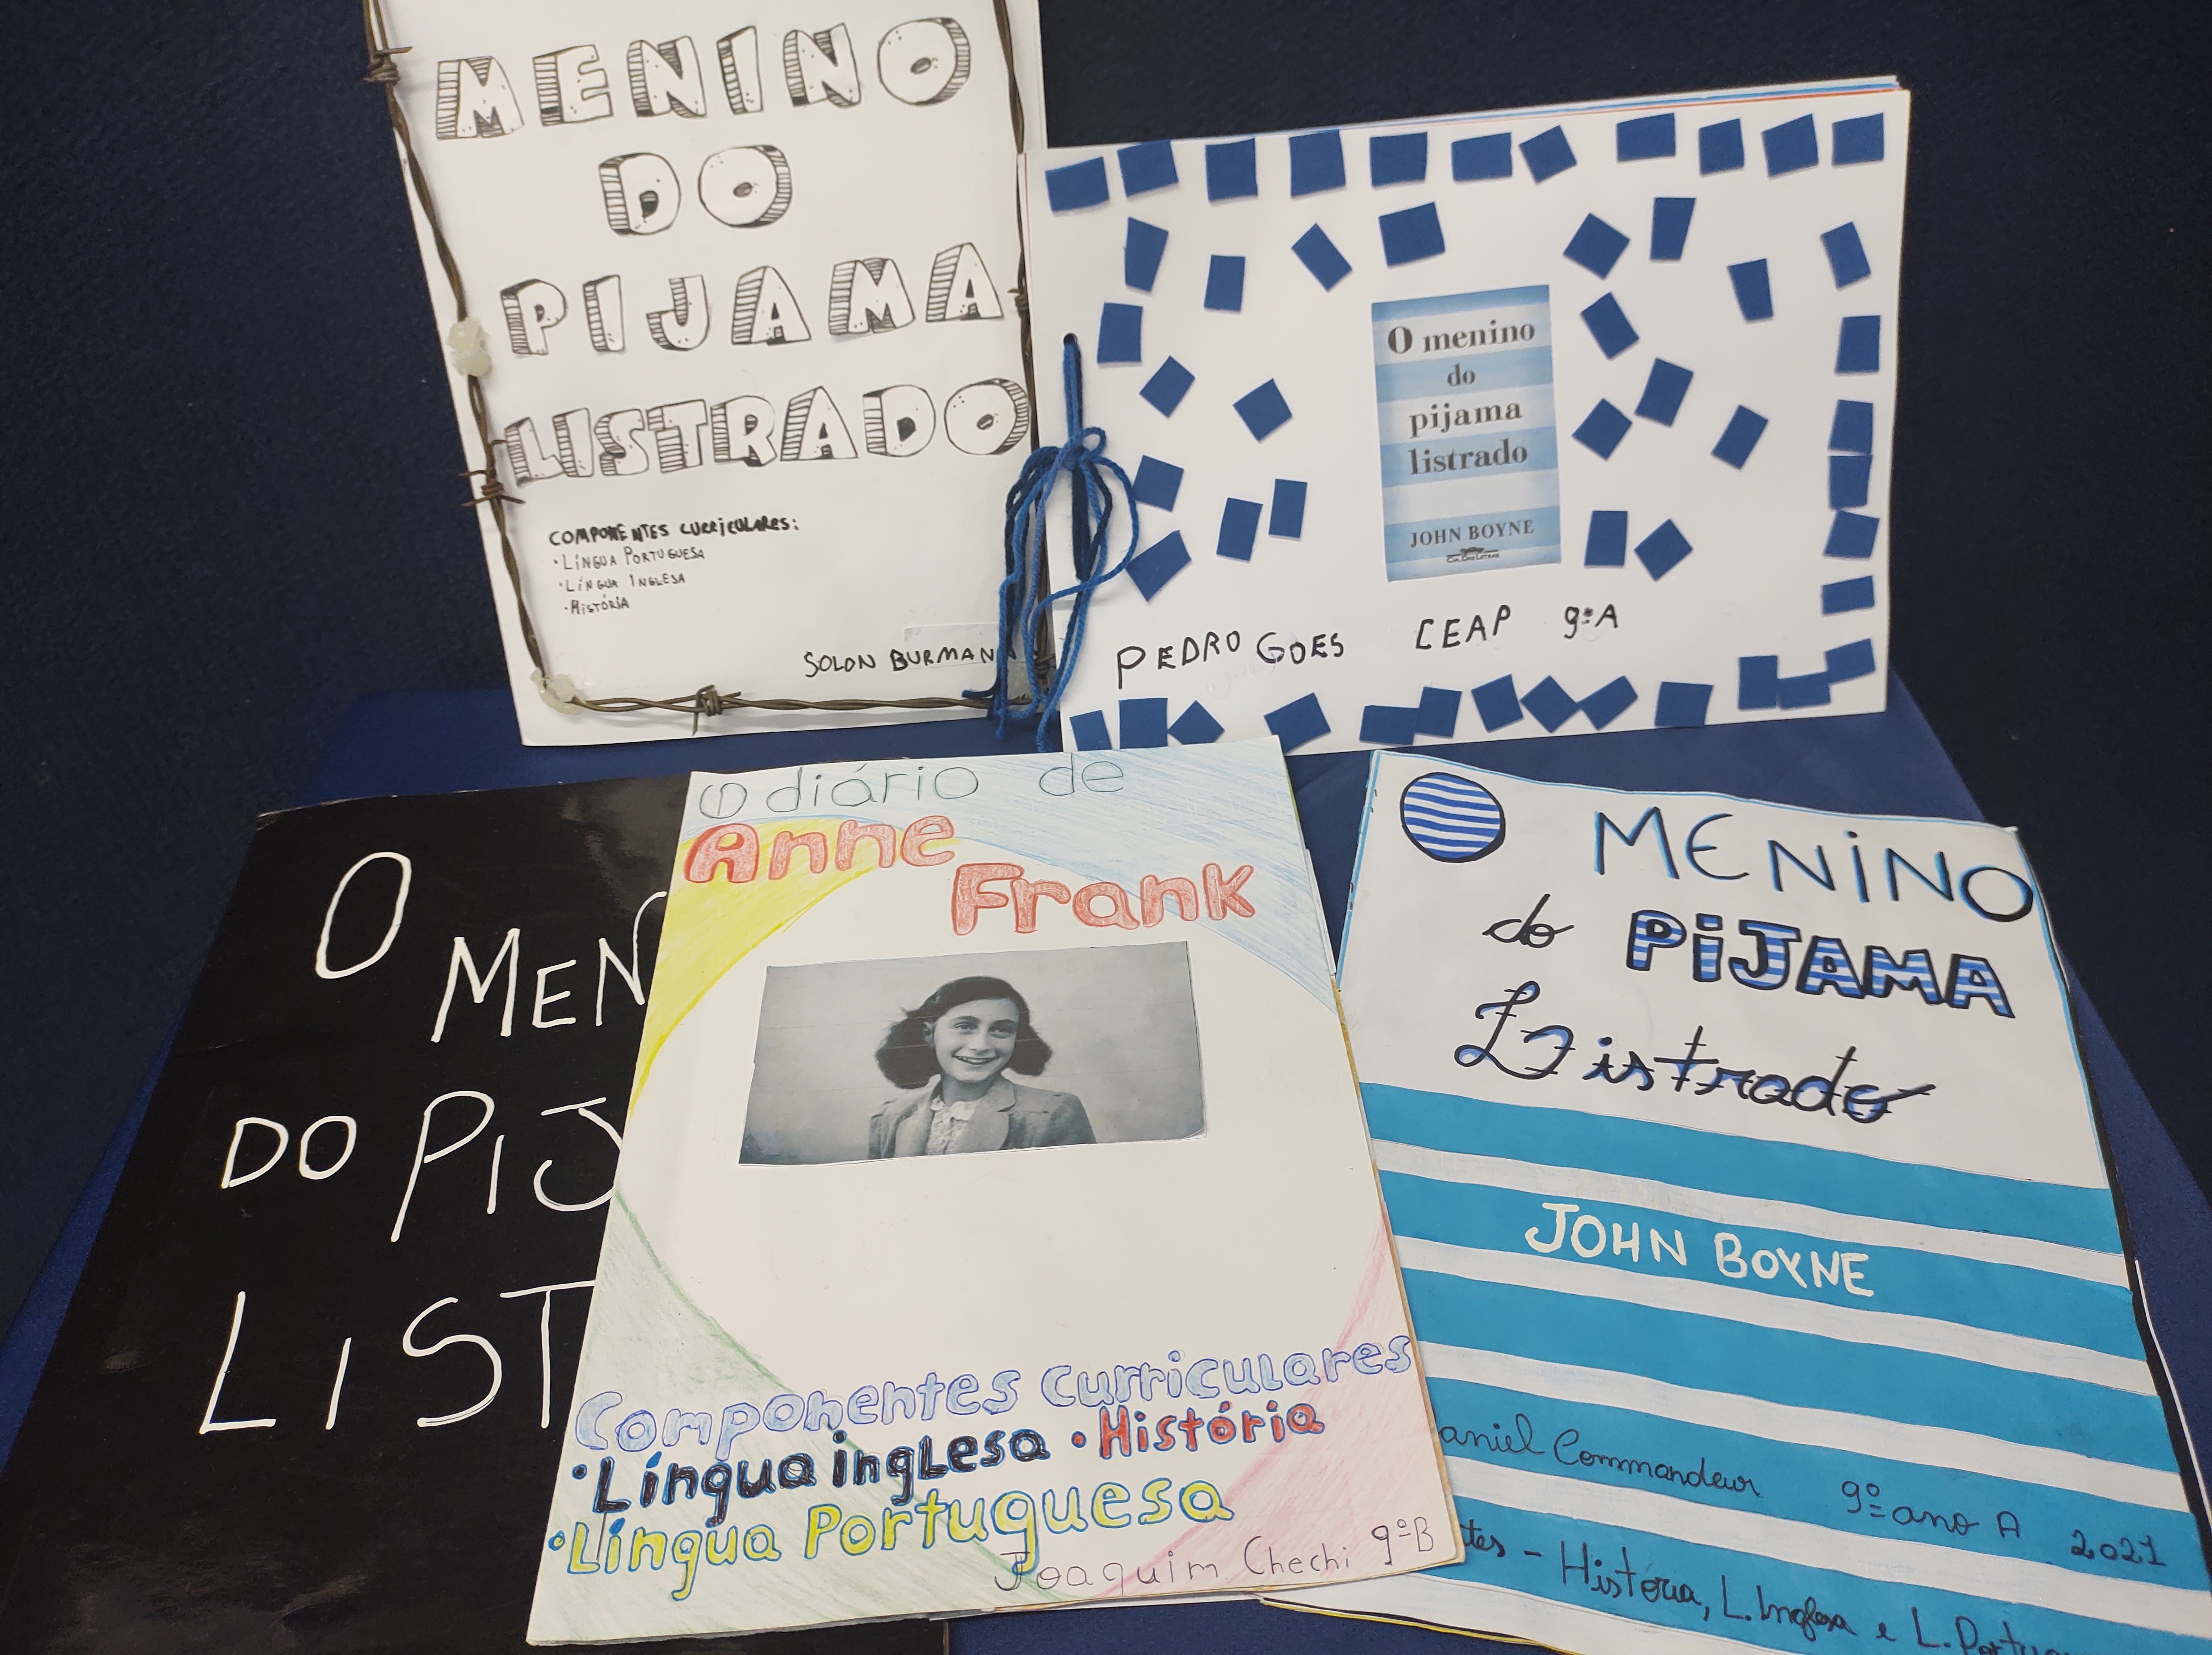 MENINO
DO
PIJAMA
LISTRADO
COMPONENTES CURRICULARES:
• LÍNGUA PORTUGUESA
• LÍNGUA INGLESA
• HISTÓRIA
SOLON BURMANN
O menino
do
pijama
listrado
JOHN BOYNE
CIA. DAS LETRAS
PEDRO GOES CEAP 9ºA
O
MEN
DO PIJ
LIST
O diário de
Anne
Frank
Componentes curriculares
• Língua inglesa • História
• Língua Portuguesa
Joaquim Chechi 9ºB
O MENINO
do PIJAMA
Listrado
JOHN BOYNE
aniel Commandeur 9º ano A 2021
tes - História, L. Inglesa e L. Portugu